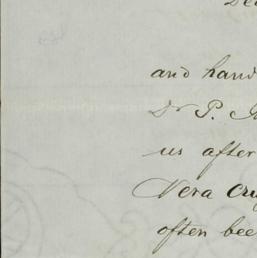 and hand
Dr P.
us after
Vera Cru
often bee